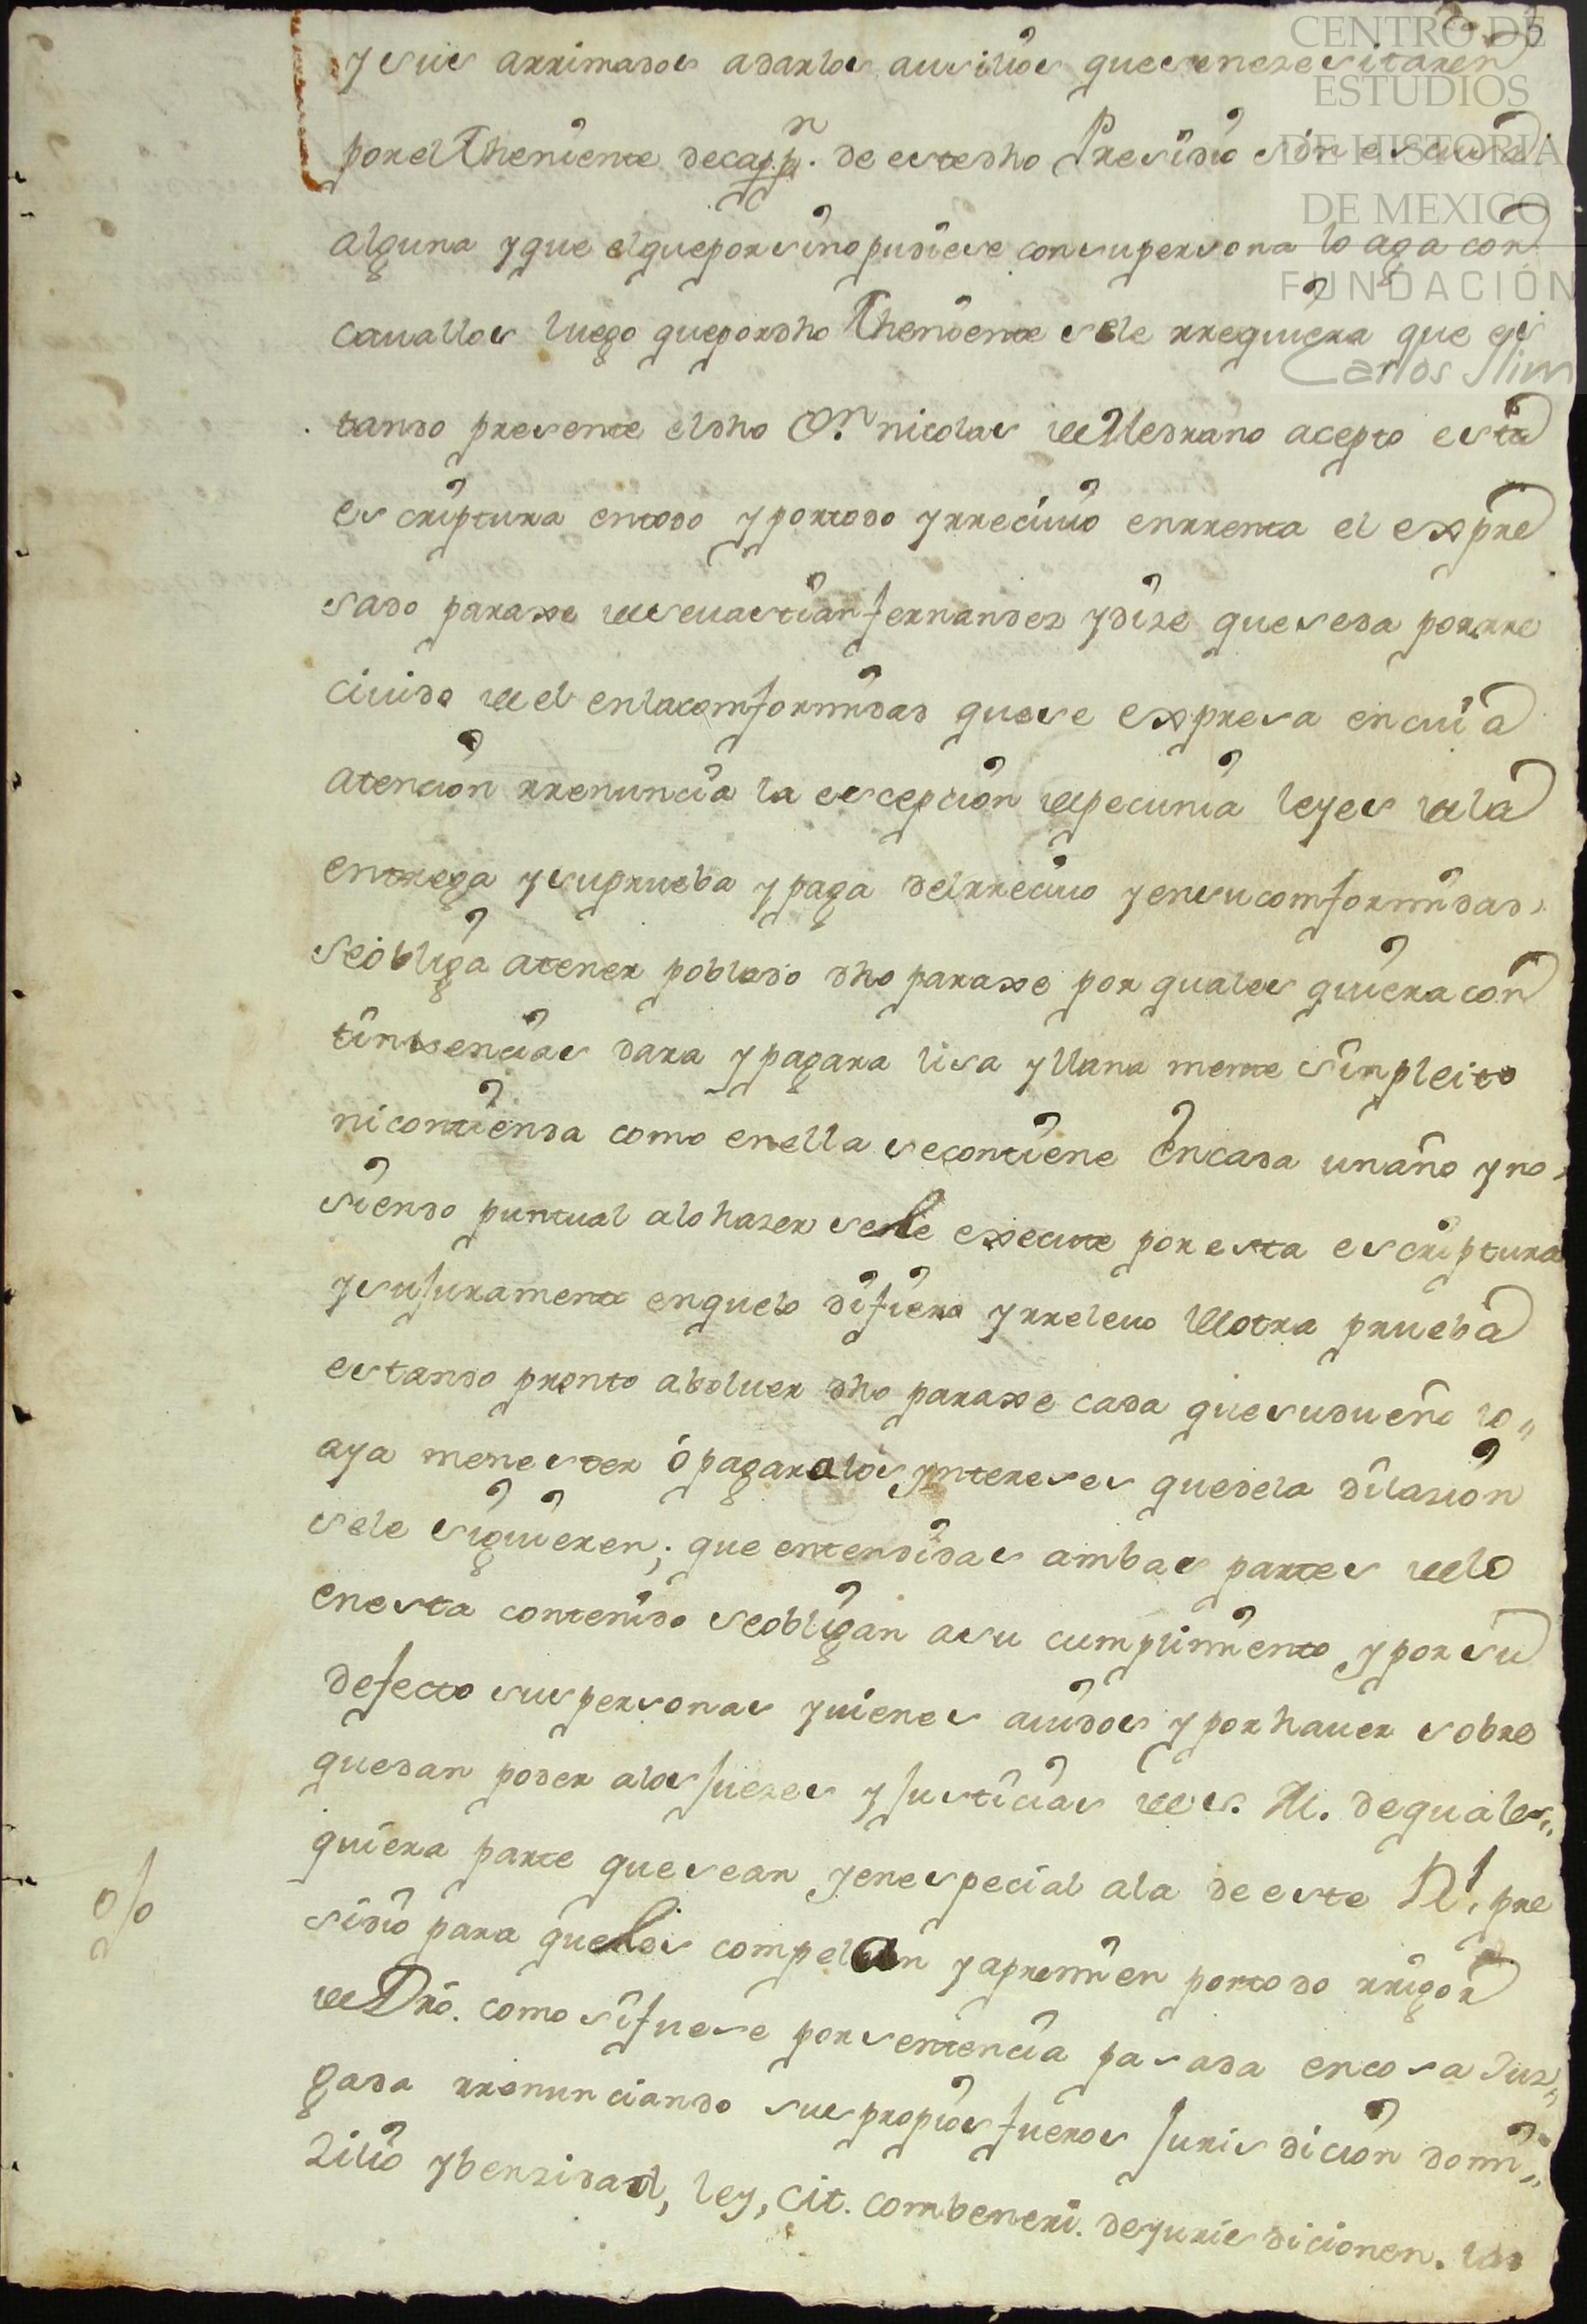 CENTRO DE
ESTUDIOS
DE HISTORIA
DE MEXICO
FUNDACIÓN
Carlos Slim
y sus arrimados a dar los ausilios que se nezesitaren
por el Theniente de cappn. de este dho Presidio sin escusa
alguna y que el que por si no pudiese con su persona lo aga con
cauallos luego que por dho Theniente se le rrequiera que es
tando presente el dho Dn. nicolas de Medrano acepto esta
escriptura en todo y por todo y rreciuio en rrenta el expre
sado paraxe de seuastian fernandez y dize que se da por rre
ciuido de el en la comformidad que se expresa en cuia
atencion rrenuncia la escepcion de pecunia leyes de la
entrega y su prueba y paga del rreciuo y en su comformidad
se obliga a tener poblado dho paraxe por quales quiera con
tinxencias dara y pagara lisa y llana mente sin pleito
ni contienda como en ella se contiene En cada un año y no
siendo puntual a lo hazer se le execute por esta escriptura
y su juramento en que lo difiere y rreleuo de otra prueba
estando pronto a boluer dho paraxe cada que su dueño lo
aya menester o pagara los yntereses que de la dilazion
se le siguieren; que entendidas ambas partes de lo
en esta contenido se obligan a su cumplimiento y por su
defecto sus personas y uienes auidos y por hauer sobre
que dan poder a los juezes y justicias de s. M. de quales
quiera parte que sean y en especial a la de este Rl. pre
sidio para que los compelan y apremien por todo rrigor
de Dro. como si fuese por sentencia pasada en cosa Juz
gada rrenunciando sus propios fueros jurisdicion domi
zilio y benzidad, ley, cit. combeneri. de yurisdicionen. las
%